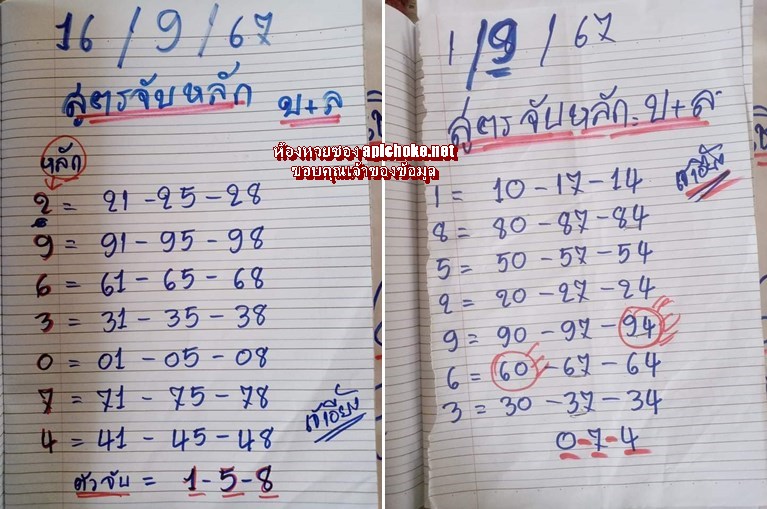 16 / 9 / 67
สูตรจับหลัก บ+ล
หลัก
2 = 21 - 25 - 28
9 = 91 - 95 - 98
6 = 61 - 65 - 68
3 = 31 - 35 - 38
0 = 01 - 05 - 08
7 = 71 - 75 - 78
4 = 41 - 45 - 48
เจ๊เอียง
ตัวจับ = 1 - 5 - 8
ห้องหวยซอง apichoke.net
ขอบคุณเจ้าของข้อมูล
1 / 9 / 67
สูตรจับหลัก: บ+ล
เจ๊เอียง
1 = 10 - 17 - 14
8 = 80 - 87 - 84
5 = 50 - 57 - 54
2 = 20 - 27 - 24
9 = 90 - 97 - 94
6 = 60 - 67 - 64
3 = 30 - 37 - 34
0 - 7 - 4